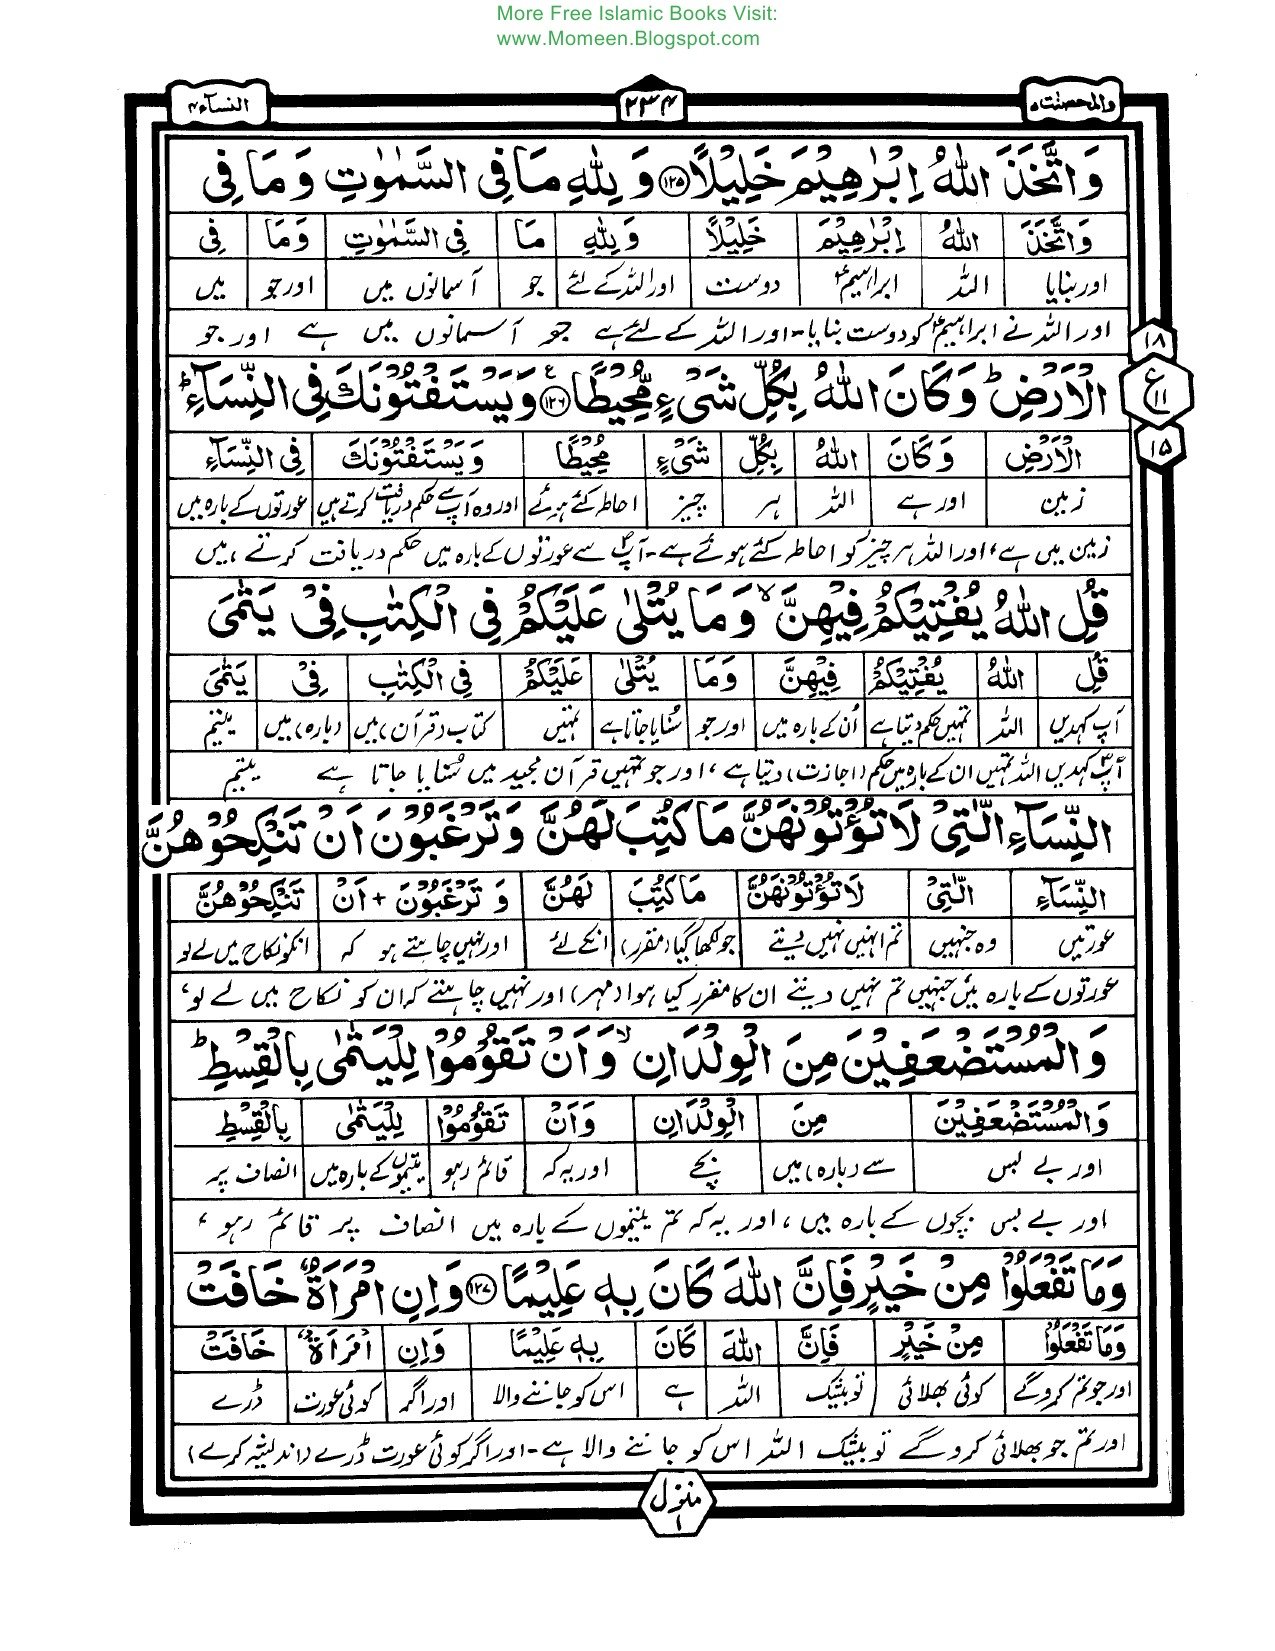 More Free Islamic Books Visit:
www.Momeen.Blogspot.com
والمحصنٰت ۵
۲۳۴
النسآء ۴
وَاتَّخَذَ اللّٰهُ اِبْرٰهِيْمَ خَلِيْلًا ۝۱۲۵ وَلِلّٰهِ مَا فِى السَّمٰوٰتِ وَمَا فِى
وَاتَّخَذَ اللّٰهُ اِبْرٰهِيْمَ خَلِيْلًا وَلِلّٰهِ مَا فِى السَّمٰوٰتِ وَمَا فِى
اور بنایا اللہ ابراہیمؑ دوست اور اللہ کے لئے جو آسمانوں میں اور جو میں
اور اللہ نے ابراہیمؑ کو دوست بنایا۔ اور اللہ کے لئے ہے جو آسمانوں میں ہے اور جو
۱۸
ع
۱۱
۱۵
الْاَرْضِ ؕ وَكَانَ اللّٰهُ بِكُلِّ شَىْءٍ مُّحِيْطًا ۝۱۲۶ وَيَسْتَفْتُوْنَكَ فِى النِّسَآءِ ؕ
الْاَرْضِ وَكَانَ اللّٰهُ بِكُلِّ شَىْءٍ مُّحِيْطًا وَيَسْتَفْتُوْنَكَ فِى النِّسَآءِ
زمین اور ہے اللہ ہر چیز احاطہ کئے ہوئے اور وہ آپؐ سے حکم دریافت کرتے ہیں عورتوں کے بارہ میں
زمین میں ہے، اور اللہ ہر چیز کو احاطہ کئے ہوئے ہے۔ آپؐ سے عورتوں کے بارہ میں حکم دریافت کرتے ہیں
قُلِ اللّٰهُ يُفْتِيْكُمْ فِيْهِنَّ ۙ وَمَا يُتْلٰى عَلَيْكُمْ فِى الْكِتٰبِ فِىْ يَتٰمَى
قُلِ اللّٰهُ يُفْتِيْكُمْ فِيْهِنَّ وَمَا يُتْلٰى عَلَيْكُمْ فِى الْكِتٰبِ فِىْ يَتٰمَى
آپ کہدیں اللہ تمہیں حکم دیتا ہے اُن کے بارہ میں اور جو سُنایا جاتا ہے تمہیں کتاب (قرآن) میں (بارہ) میں یتیم
آپؐ کہدیں اللہ تمہیں ان کے بارہ میں حکم (اجازت) دیتا ہے، اور جو تمہیں قرآن مجید میں سُنایا جاتا ہے یتیم
النِّسَآءِ الّٰتِىْ لَا تُؤْتُوْنَهُنَّ مَا كُتِبَ لَهُنَّ وَتَرْغَبُوْنَ اَنْ تَنْكِحُوْهُنَّ
النِّسَآءِ الّٰتِىْ لَا تُؤْتُوْنَهُنَّ مَا كُتِبَ لَهُنَّ وَتَرْغَبُوْنَ + اَنْ تَنْكِحُوْهُنَّ
عورتیں وہ جنہیں تم انہیں نہیں دیتے جو لکھا گیا (مقرر) انکے لئے اور نہیں چاہتے ہو کہ انکو نکاح میں لے لو
عورتوں کے بارہ میں جنہیں تم نہیں دیتے ان کا مقرر کیا ہوا (مہر) اور نہیں چاہتے کہ ان کو نکاح میں لے لو،
وَالْمُسْتَضْعَفِيْنَ مِنَ الْوِلْدَانِ ۙ وَاَنْ تَقُوْمُوْا لِلْيَتٰمٰى بِالْقِسْطِ ؕ
وَالْمُسْتَضْعَفِيْنَ مِنَ الْوِلْدَانِ وَاَنْ تَقُوْمُوْا لِلْيَتٰمٰى بِالْقِسْطِ
اور بے بس سے (بارہ) میں بچے اور یہ کہ قائم رہو یتیموں کے بارہ میں انصاف پر
اور بے بس بچوں کے بارہ میں، اور یہ کہ تم یتیموں کے بارہ میں انصاف پر قائم رہو،
وَمَا تَفْعَلُوْا مِنْ خَيْرٍ فَاِنَّ اللّٰهَ كَانَ بِهٖ عَلِيْمًا ۝۱۲۷ وَاِنِ امْرَاَةٌ خَافَتْ
وَمَا تَفْعَلُوْا مِنْ خَيْرٍ فَاِنَّ اللّٰهَ كَانَ بِهٖ عَلِيْمًا وَاِنِ امْرَاَةٌ خَافَتْ
اور جو تم کروگے کوئی بھلائی تو بیشک اللہ ہے اس کو جاننے والا اور اگر کوئی عورت ڈرے
اور تم جو بھلائی کروگے تو بیشک اللہ اس کو جاننے والا ہے۔ اور اگر کوئی عورت ڈرے (اندیشہ کرے)
منزل
۱